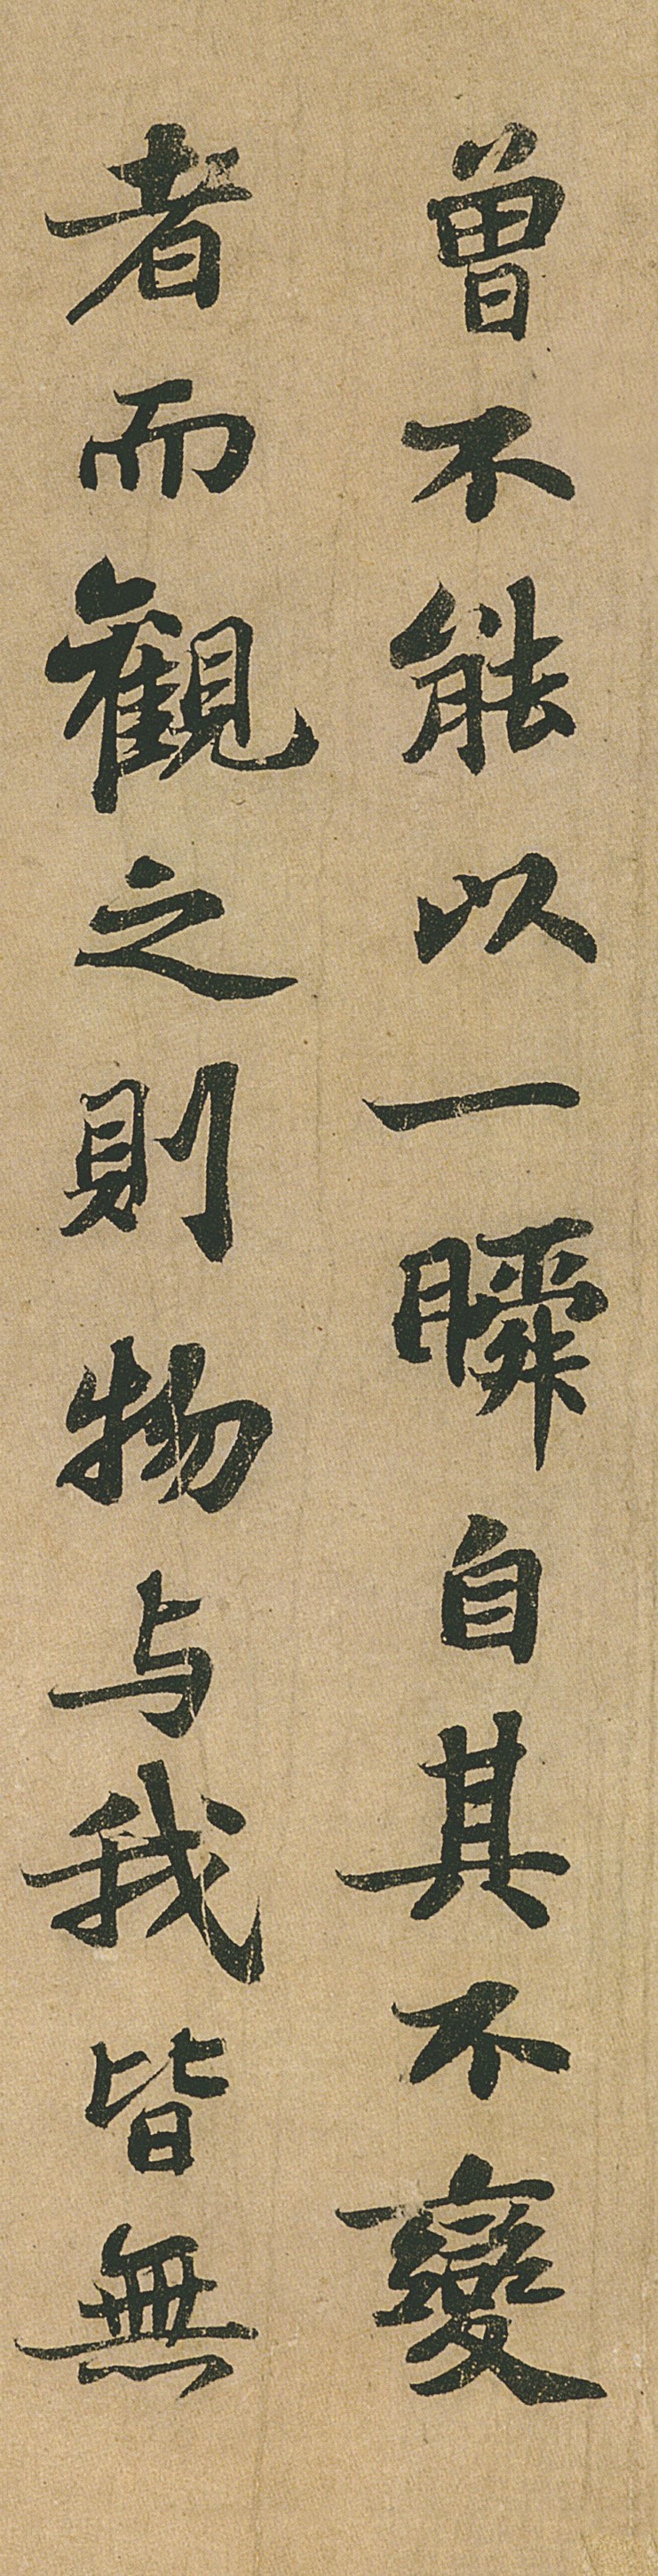 曾不能以一瞬自其不變
者而觀之則物与我皆無